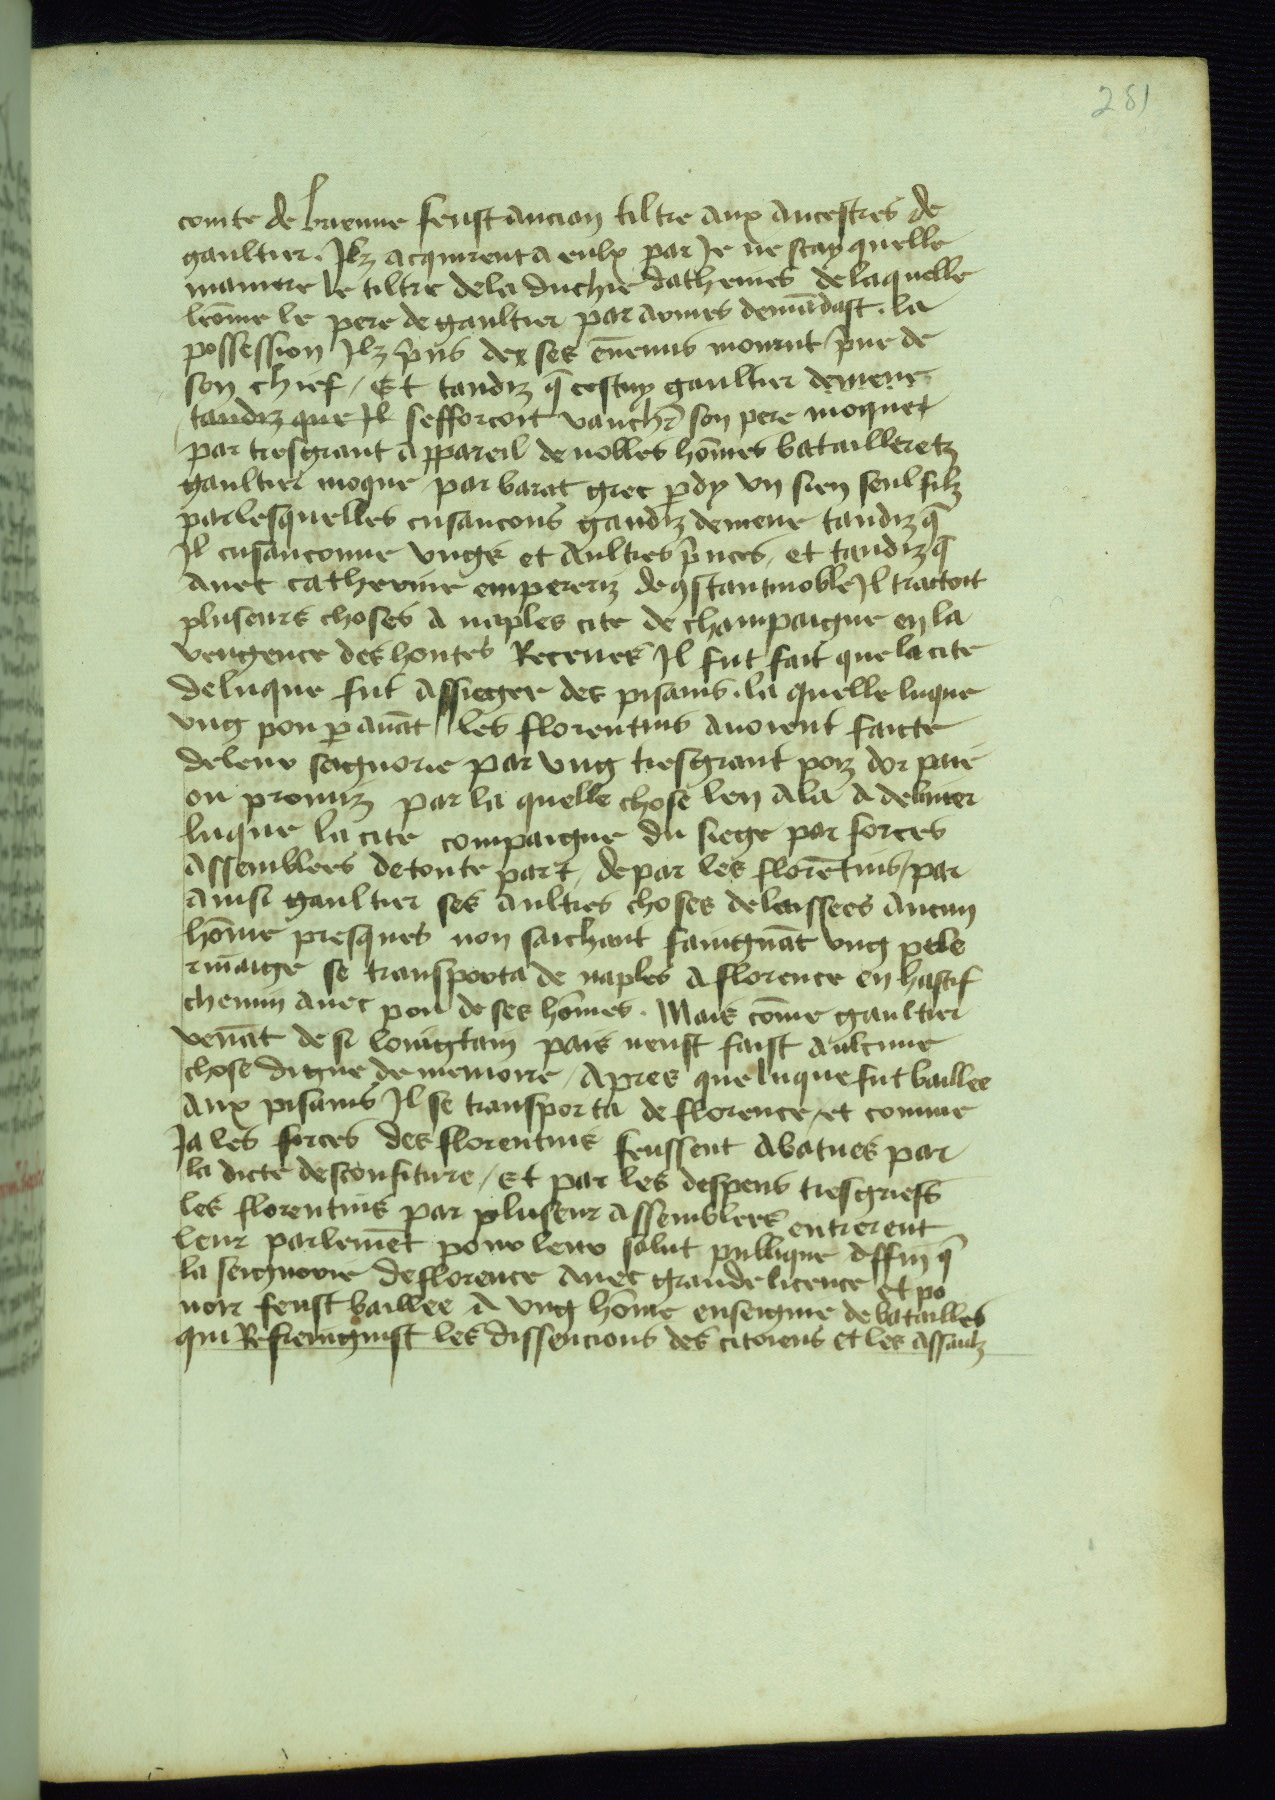 281
comte de brienne feust ancian tiltre aux ancestres de
gaultier. Jlz acquirent a eulx par Je ne scay quelle
maniere le tiltre de la duchie dathenies de laquelle
com̄e le pere de gaultier par armes demādast . la
possession Jlz p̄ns de ses en̄emis mourut p̄ue de
son chief / Et tandiz q̄ cestuy gaultier demene
tandiz que Jl sefforcoit vanch̄r son pere moquet
par tresgrant appareil de nobles hom̄es batailleretz
gaultier moque par barat grec pdy vn sien seul filz
par lesquelles cusancons gandiz demene tandiz q̄
Jl cusanconne vngs et aultres p̄nces / et tandiz q̄
auec catherine empereriz de 9stantinoble Jl traictoit
pluseurs choses a naples cite de champaigne en la
vengence des hontes Receues Jl fut fait que la cite
de luque fut assiegee des pisains . la quelle luque
vng pou p auāt les florentins auoient faicte
de leur seignorie par vng tresgrant poiz dor paie
ou promiz par la quelle chose len ala a deliurer
luque la cite compaigne du siege par forces
assemblees de toute part / de par les florētins / par
ainsi gaultier ses aultres choses delaissees aucun
hom̄e presques non saichant faingnāt vng pele
rinaige se transporta de naples a florence en hastif
chemin auec pou de ses hom̄es . Mais com̄e gaultier
venāt de si loingtain pais neust faist aulcune
chose digne de memoire / apres que luque fut baillee
aux pisains Jl se transporta de florence / et comme
Ja les forces des florentins feussent abatues par
la dicte desconfiture / Et par les despens tresgriefs
les florentins par pluseur assemblees entrerent
leur parlemēt pour leur salut publique affin q̄
la seignorie de florence auec grande licence et po
uoir feust baillee a vng hom̄e enseigne de batailles
qui Refrenignist les dissencions des citoiens et les assaulz